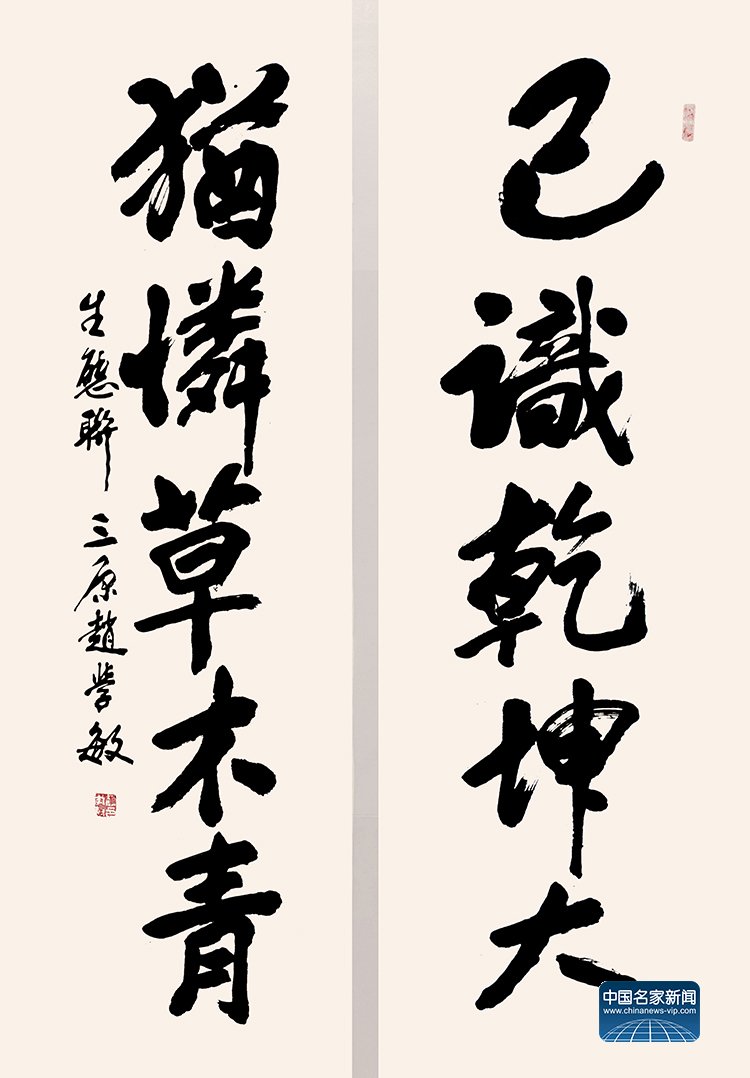 已識乾坤大
猶憐草木青
生態聯 三原趙學敏
中国名家新闻
www.chinanews-vip.com